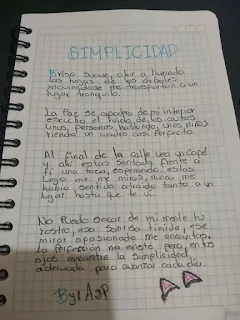 SIMPLICIDAD
Brisa suave, olor a humedo
las hojas de los árboles
moviendose me transportan a un
lugar tranquilo.
La Paz se apodera de mi interior
escucho el ruido de los autos
unos, personas hablando, unos niños
riendo un cuadro casi perfecto.
Al final de la calle veo un café
y ahí estas sentada frente a
ti una taza, esperando estas
Llego me me miras, nunca me
había sentido atraído tanto a un
lugar hasta que te vi.
No Puedo sacar de mi mente tu
rostro, esa sonrisa timida, ese
mirar apasionado me encantas.
La perfección no existe pero en tus
ojos encontre la simplicidad
adecuada para avanzar cada día.
By r A J P